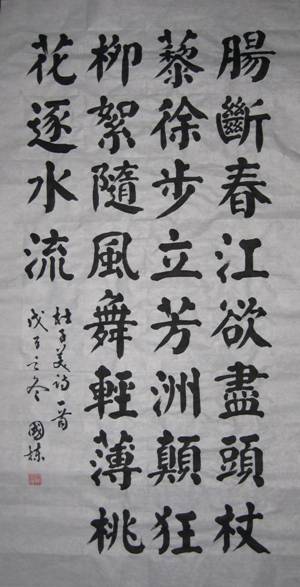 腸斷春江欲盡頭杖
藜徐步立芳洲顛狂
柳絮隨風舞輕薄桃
花逐水流
杜子美詩一首
戊子之冬 國棟